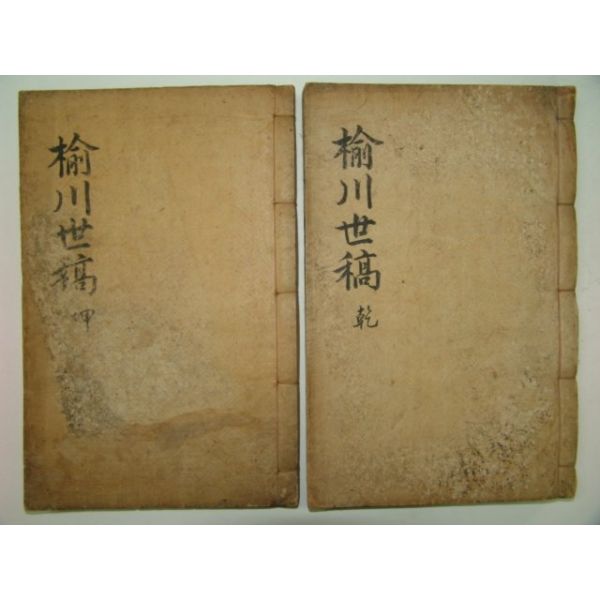 楡川世稿
乾
楡川世稿
坤